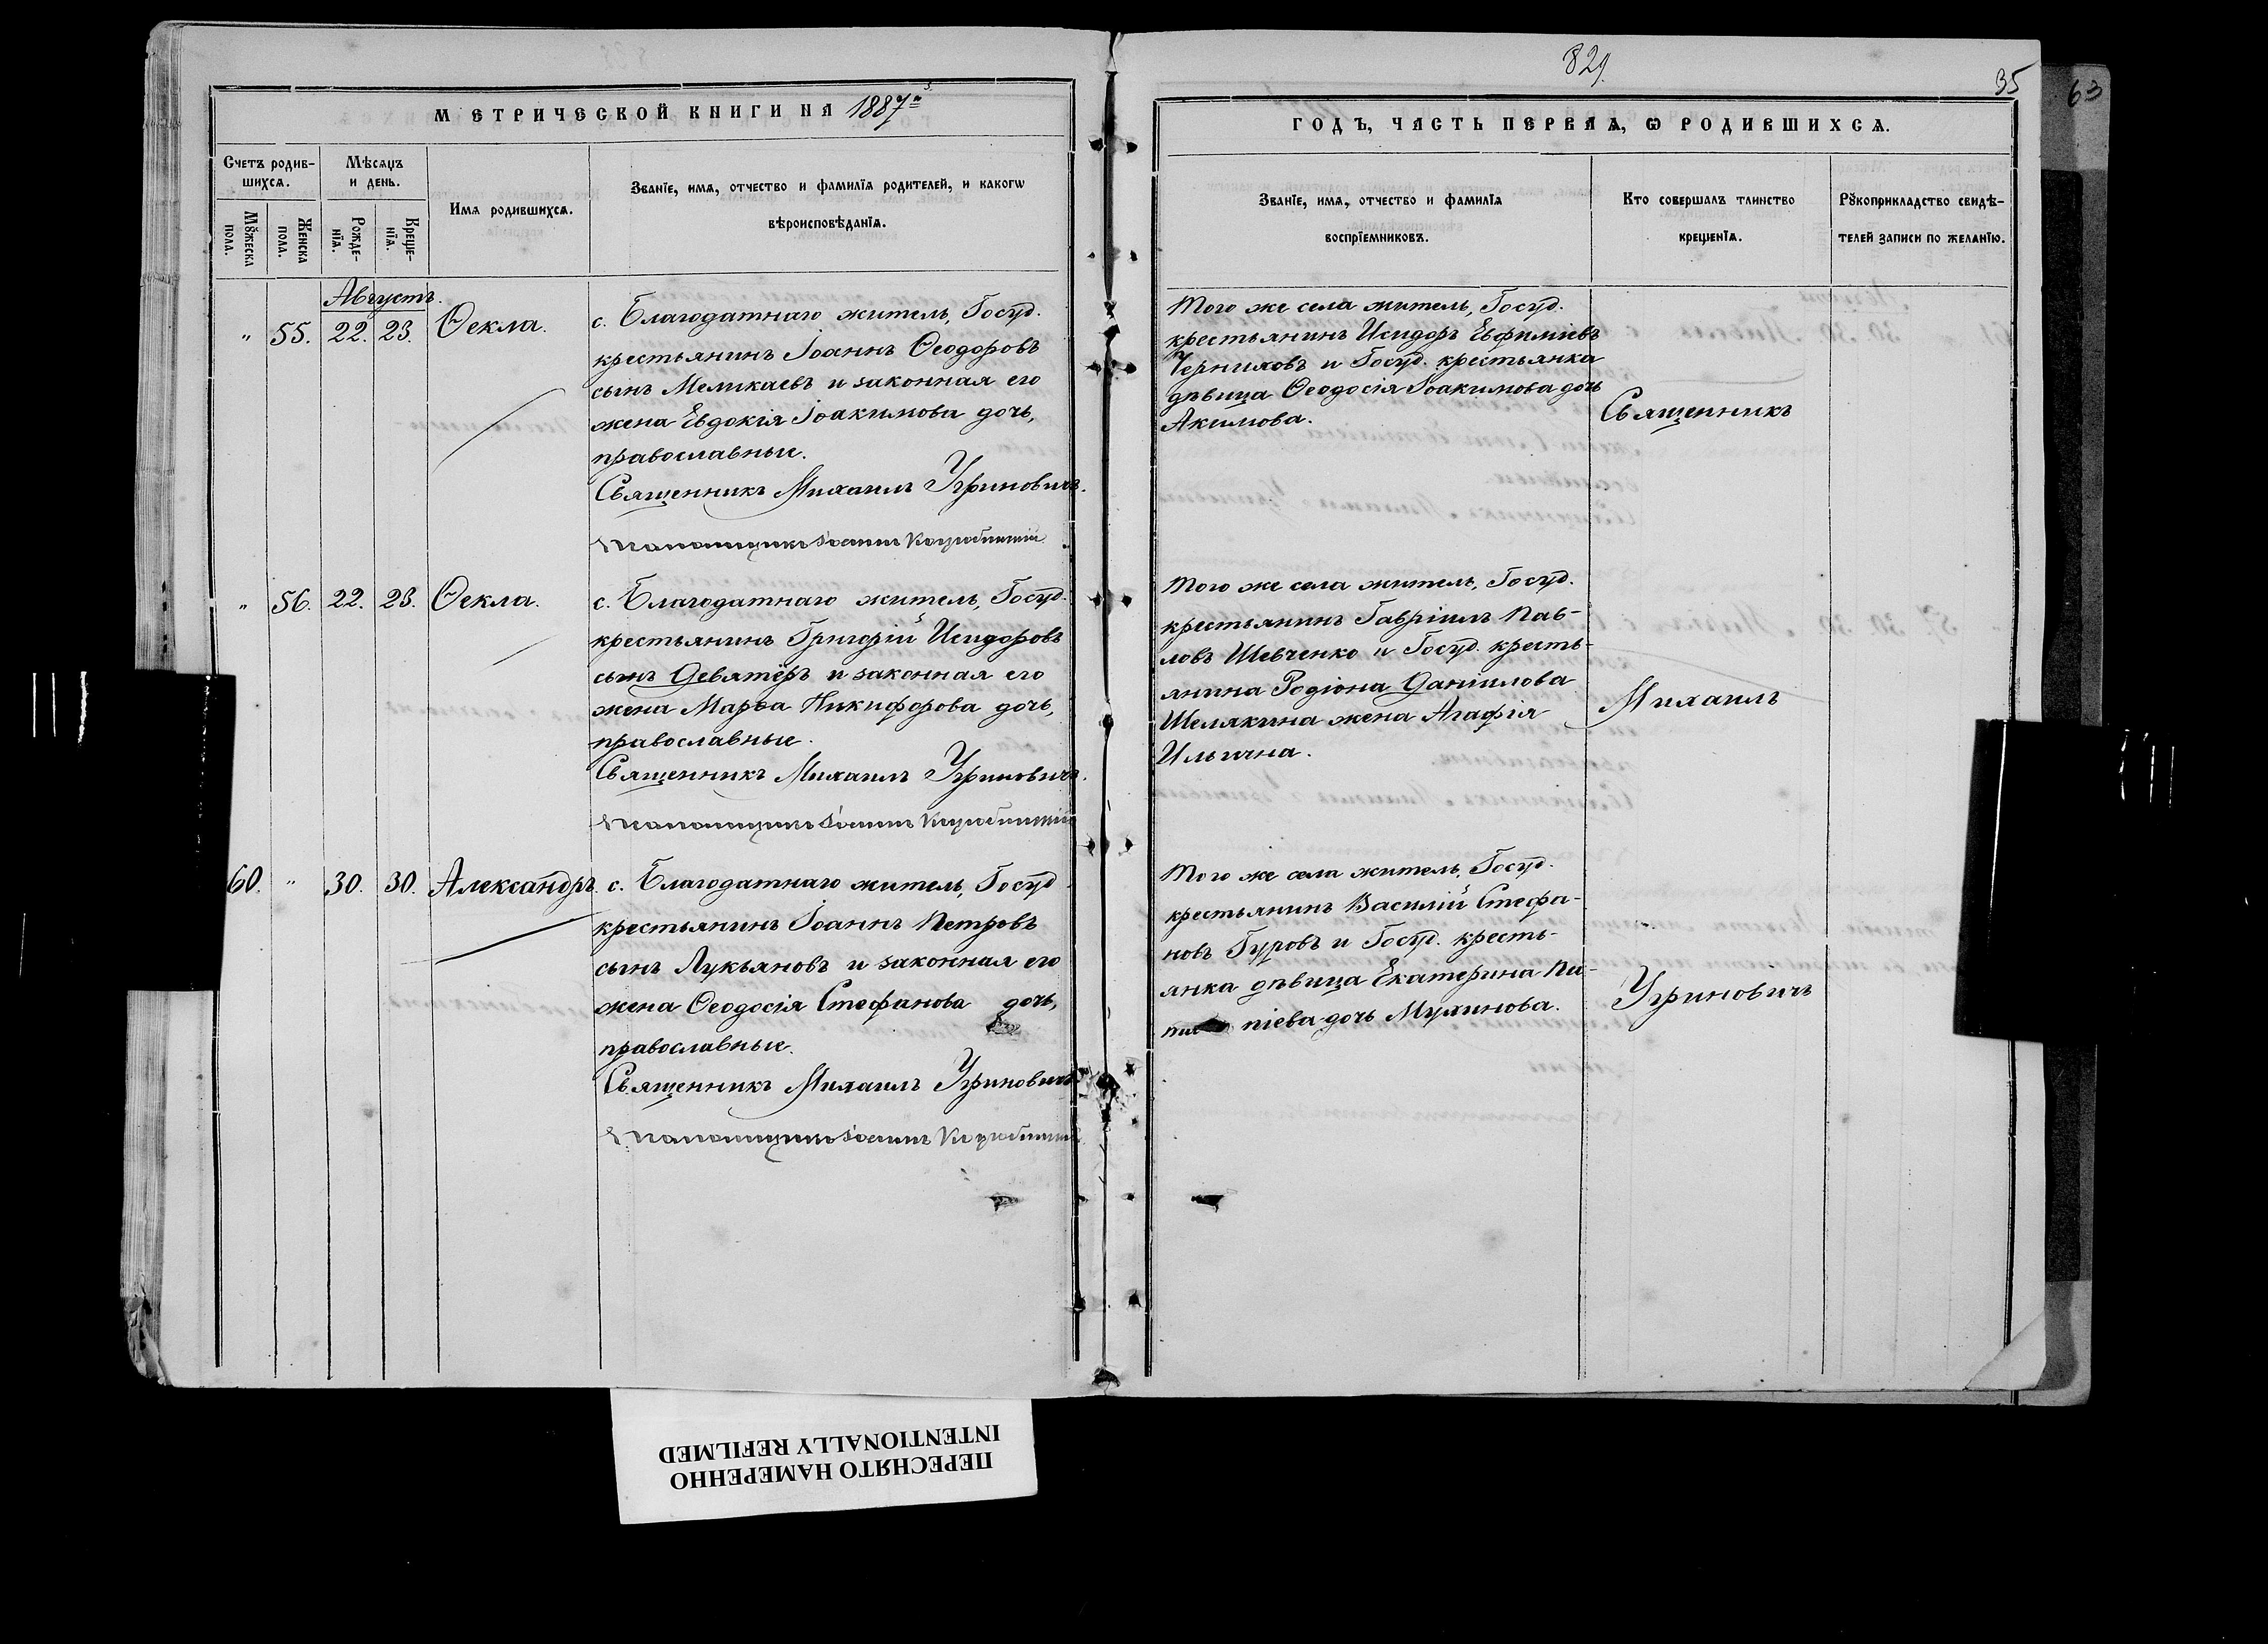 829
35
63
МЕТРИЧЕСКОЙ КНИГИ НА 1887й
ГОДЪ, ЧАСТЬ ПЕРВАЯ, Ѡ РОДИВШИХСѦ.
Счетъ родив-
шихсѧ.
Мѣсѧцъ
и день.
Мꙋжеска
пола.
Женска
пола.
Рожде-
нїѧ.
Креще-
нїѧ.
Имѧ родившихсѧ.
Званїе, имѧ, отчество и фамилїѧ родителей, и какогѡ
вѣроисповѣданїѧ.
Званїе, имѧ, отчество и фамилїѧ
воспрїемниковъ.
Кто совершалъ таинство
крещенїѧ.
Рꙋкоприкладство свидѣ-
телей записи по желанїю.
Августъ.
" 55. 22. 23. Ѳекла.
с. Благодатнаго житель, Госуд.
крестьянинъ Іоаннъ Ѳеодоровъ
сынъ Меликаевъ и законная его
жена Евдокія Іоакимова дочь,
православные.
Священникъ Михаилъ Угриновичъ.
Іоаннъ
Того же села житель, Госуд.
крестьянинъ Исидоръ Евфиміевъ
Черниховъ и Госуд. крестьянка
дѣвица Ѳеодосія Іоакимова дочь
Акимова.
Священникъ
" 56. 22. 23. Ѳекла.
с. Благодатнаго житель, Госуд.
крестьянинъ Григорій Исидоровъ
сынъ Девятёръ и законная его
жена Марѳа Никифорова дочь,
православные.
Священникъ Михаилъ Угриновичъ.
Іоаннъ
Того же села житель, Госуд.
крестьянинъ Гавріилъ Пав-
ловъ Шевченко и Госуд. кресть-
янина Родіона Даніилова
Шелякина жена Агафія
Ильична.
Михаилъ
60. " 30. 30. Александръ
с. Благодатнаго житель, Госуд.
крестьянинъ Іоаннъ Петровъ
сынъ Лукьяновъ и законная его
жена Ѳеодосія Стефанова дочь,
православные.
Священникъ Михаилъ Угриновичъ
Іоаннъ
Того же села житель, Госуд.
крестьянинъ Василій Стефа-
новъ Гуровъ и Госуд. кресть-
янка дѣвица Екатерина
піева дочь Мухинова.
Угриновичъ
ПЕРЕСНЯТО НАМЕРЕННО
INTENTIONALLY REFILMED